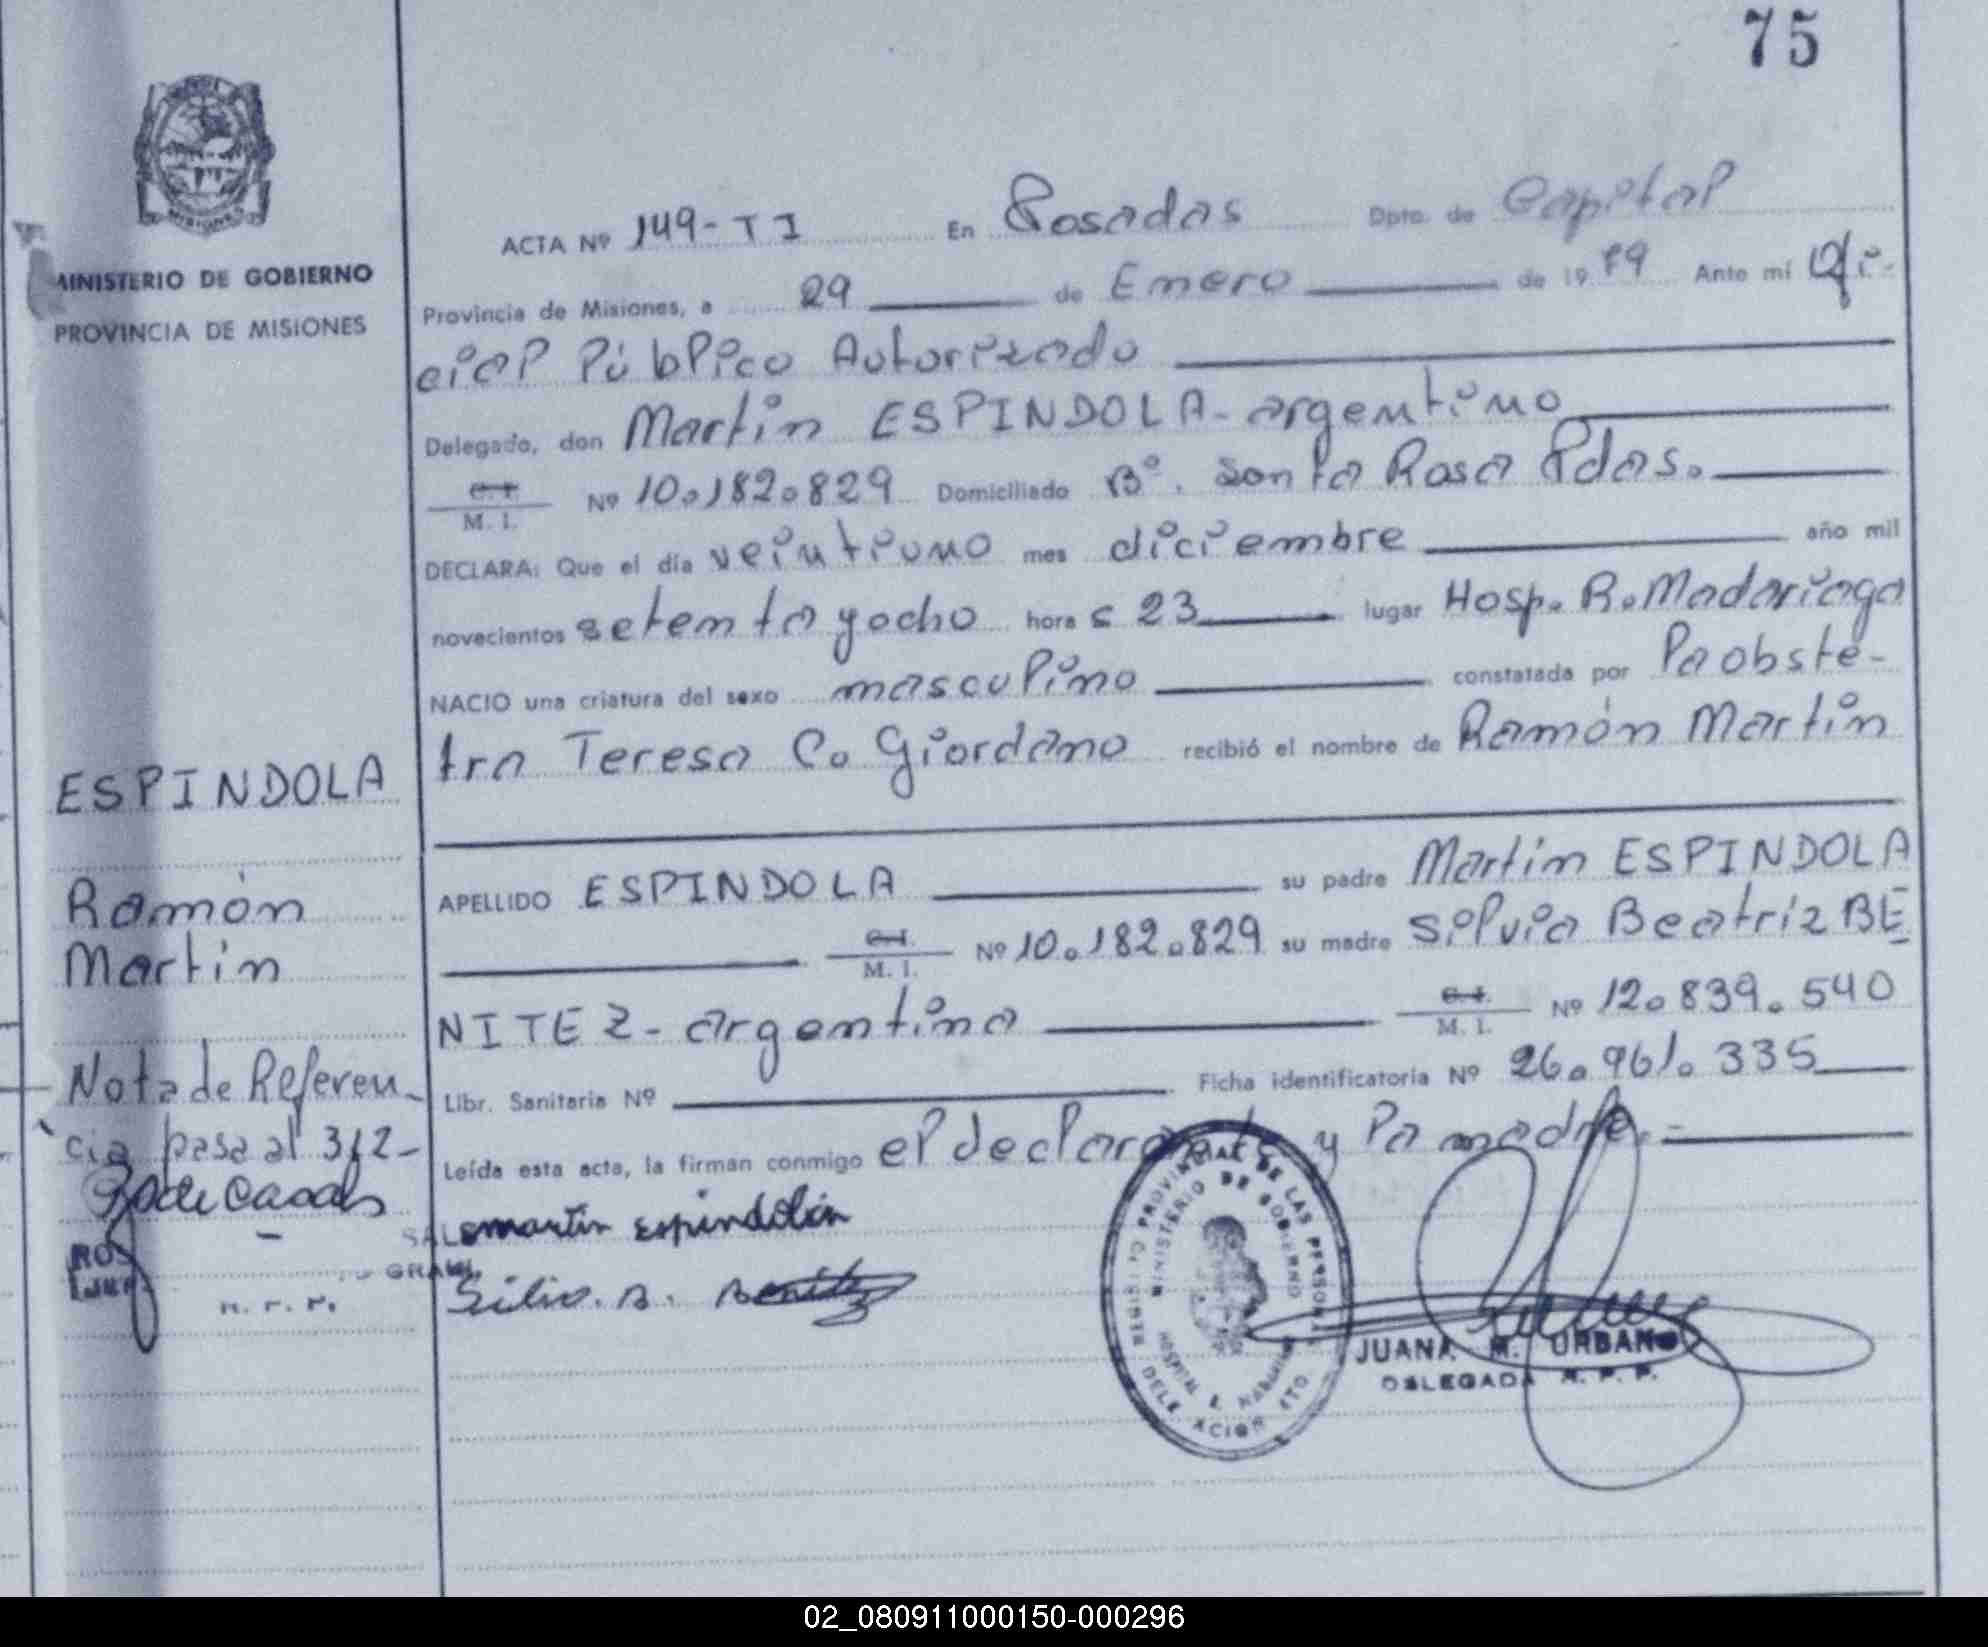 75
MINISTERIO DE GOBIERNO
PROVINCIA DE MISIONES
ACTA Nº 149-TI En Posadas Dpto. de Capital
Provincia de Misiones, a 29 de Enero de 1979 Ante mí Ofi-
cial Público Autorizado
Delegado, don Martin ESPINDOLA - argentino
C. I.
M. I. Nº 10.182.829 Domiciliado Bº. Santa Rosa Pdas.
DECLARA: Que el día veintiuno mes diciembre año mil
novecientos setenta y ocho hora s 23 lugar Hosp. R. Madariaga
NACIO una criatura del sexo masculino constatada por la obste-
tra Teresa C. Giordano recibió el nombre de Ramón Martin
APELLIDO ESPINDOLA su padre Martin ESPINDOLA
C. I.
M. I. Nº 10.182.829 su madre Silvia Beatriz BE
NITEZ - argentina C. I.
M. I. Nº 12.839.540
Libr. Sanitaria Nº Ficha identificatoria Nº 26.961.335
Leída esta acta, la firman conmigo el declarante y la madre.-
ESPINDOLA
Ramón
Martin
Nota de Referen-
cia pasa al 312-
R. P. P.
martin espindola
Silvia. B. Benitez
REGISTRO PROVINCIAL DE LAS PERSONAS
MINISTERIO DE GOBIERNO
JUANA M. URBANO
DELEGADA R. P. P.
02_080911000150-000296